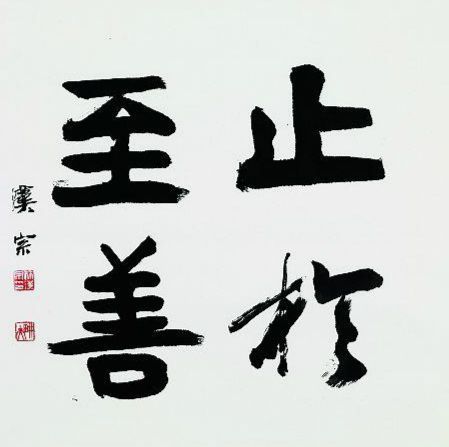 止於
至善
漢宗